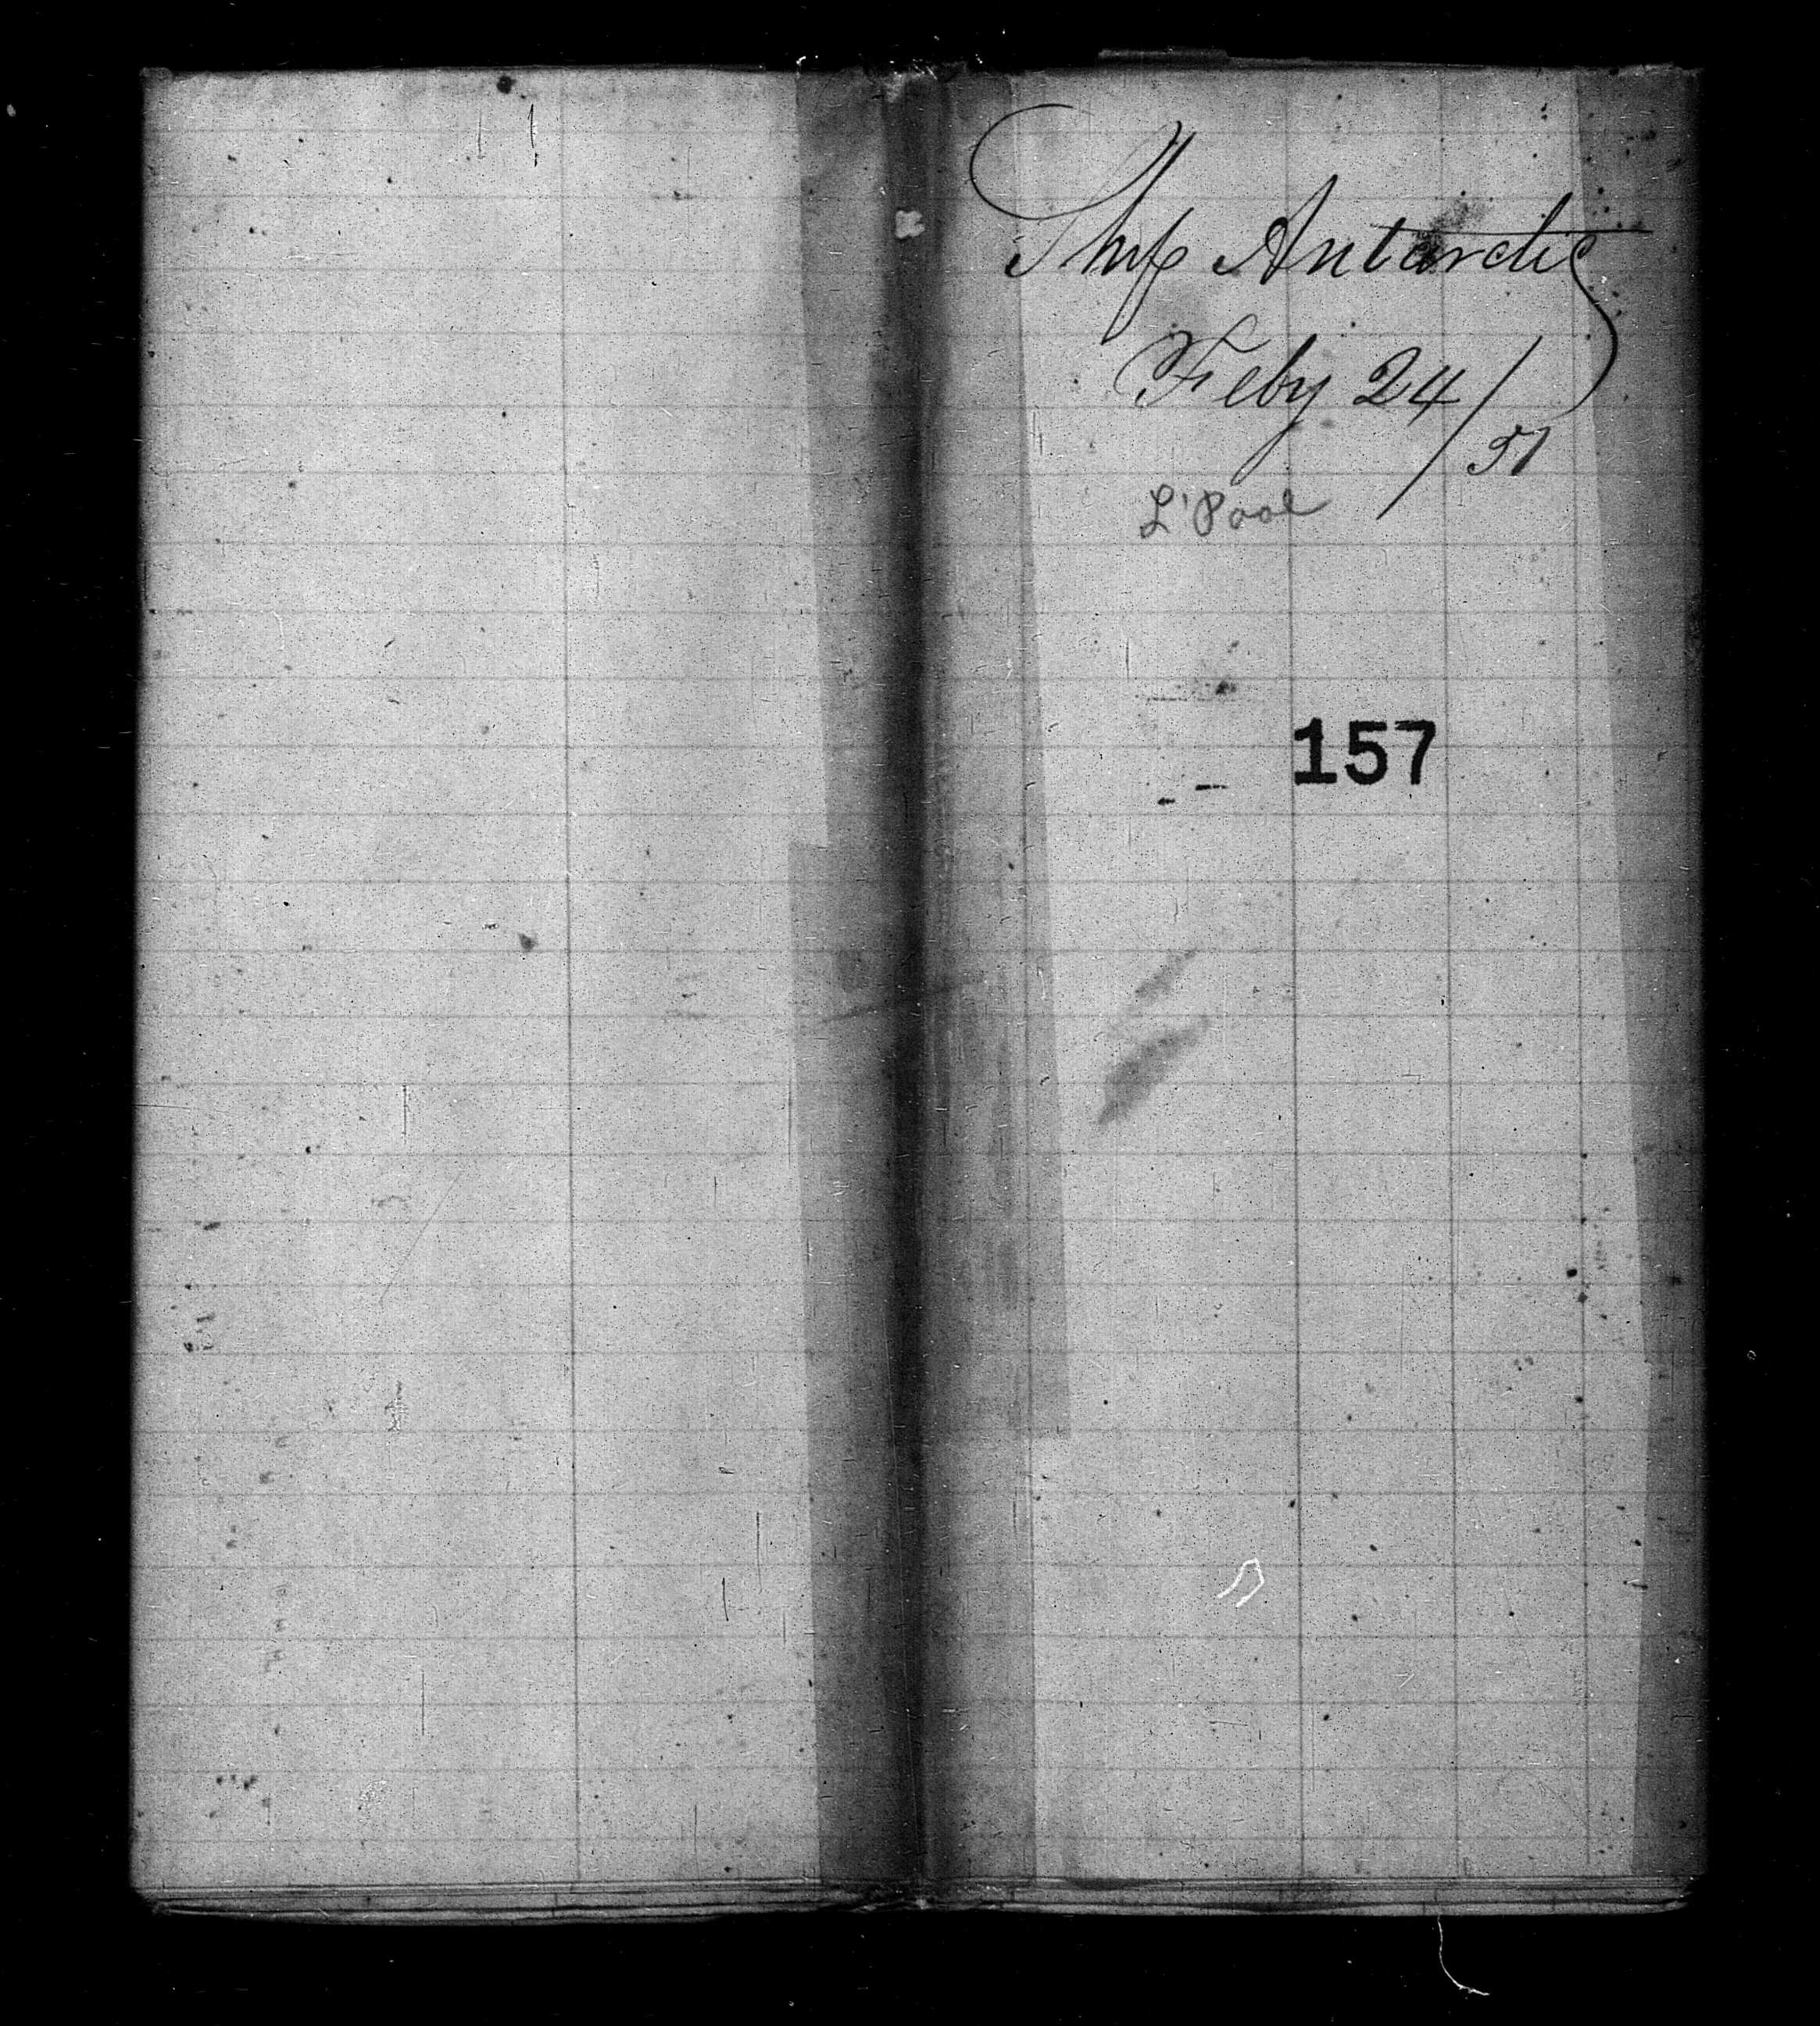 Ship Antarctic
Feby 24/51
L'Pool
157